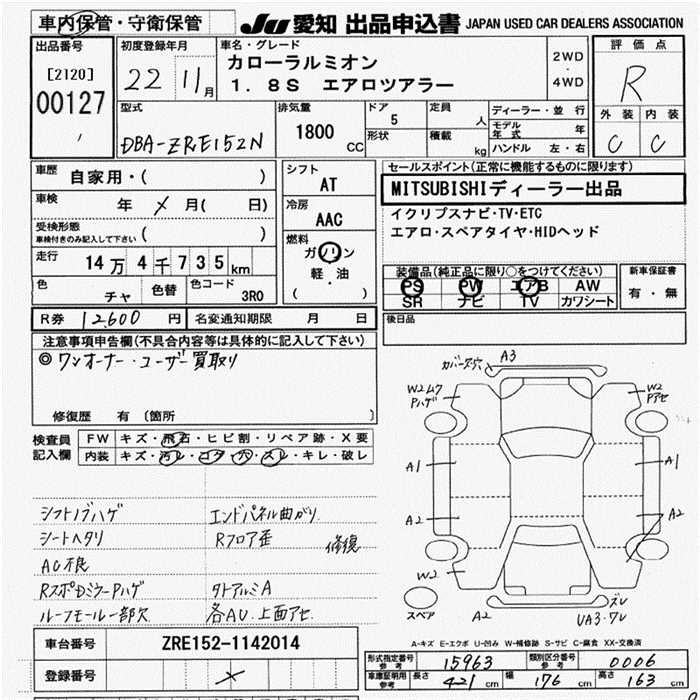 車内保管・守衛保管
JU 愛知 出品申込書 JAPAN USED CAR DEALERS ASSOCIATION
出品番号
[2120]
00127
初度登録年月
22 11月
車名・グレード
カローラルミオン
1.8S エアロツアラー
2WD
・
4WD
評価点
R
外装 内装
C C
型式
DBA-ZRE152N
排気量
1800 CC
ドア
5
形状
定員
人
積載
kg
ディーラー・並行
モデル年式 年
ハンドル 左・右
車歴
自家用・( )
車検
年 メ 月( 日)
受検形態
車検付きのみ記入して下さい ( )
走行
14万4千735km
色
チャ
色替
色コード
3R0
シフト
AT
冷房
AAC
燃料
ガソリン
軽・油
( )
セールスポイント(正常に機能するものに限ります)
MITSUBISHIディーラー出品
イクリプスナビ・TV・ETC
エアロ・スペアタイヤ・HIDヘッド
装備品(純正品に限り○をつけてください)
PS PW エアB AW
SR ナビ TV カワシート
新車保証書
有・無
R券 12600 円 名変通知期限 月 日
後日品
注意事項申告欄(不具合内容等は具体的に記入して下さい)
◎ワンオーナー・ユーザー買取り
修復歴 有 〔箇所 〕
検査員記入欄
FW キズ・飛石・ヒビ割・リペア跡・X要
内装 キズ・汚レ・コゲ・穴・スレ・キレ・破レ
シフトノブハゲ
シートヘタリ
AC不良
RスポDミラーPハゲ
ルーフモール一部欠
エンドパネル曲がり
Rフロア歪 修復
タトアルミA
各AU・上面アセ
カバー欠穴 A3
W2ムク
Pハゲ
W2
Pアセ
A1
A1
A2
A2
W2
スペア
A2
ズレ
UA3・ワレ
A-キズ E-エクボ U-凹み W-補修跡 S-サビ C-腐食 XX-交換済
車台番号 ZRE152-1142014
登録番号
形式指定番号 参考 15963
類別区分番号 参考 0006
車庫証明用参考 長さ 421 cm 幅 176 cm 高さ 163 cm